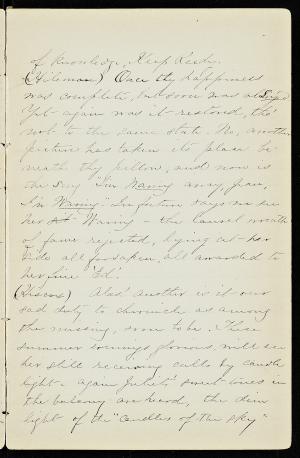 of knowledge, Keep Kesty.
(Hileman) Once thy happiness
was complete, but soon was
Yet again was it restored, tho'
not to the same state. No, another
picture has taken its place be
neath thy pillow, and now is
the song "I'm Waning away, Jean,
I'm Waning" Infection says we see
her Waning - the laurel wreath
of fame rejected, lying at her
side all forsaken, all awarded to
her
(Hiscox) Alas! another is it our
sad duty to chronicle as among
the missing, soon to be. These
summer evenings glorious, will see
her still receiving calls by candle
light - again Juliet's sweet tones in
the balcony are heard, the dim
light of the "Candles of the sky"